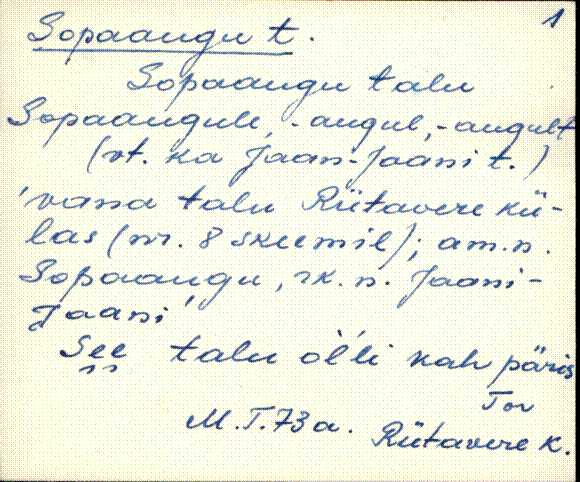 1
Sopaaugu t.
Sopaaugu talu
Sopaaugule, -augul, -augult
(vt. ka Jaan-Jaani t.)
'vana talu Rütavere kü-
las (nr. 8 skeemil); am.n.
Sopaaugu, rk. n. Jaani-
Jaani'
See talu òĺli kah päris
Tor
M.T. 73 a. Rütavere k.